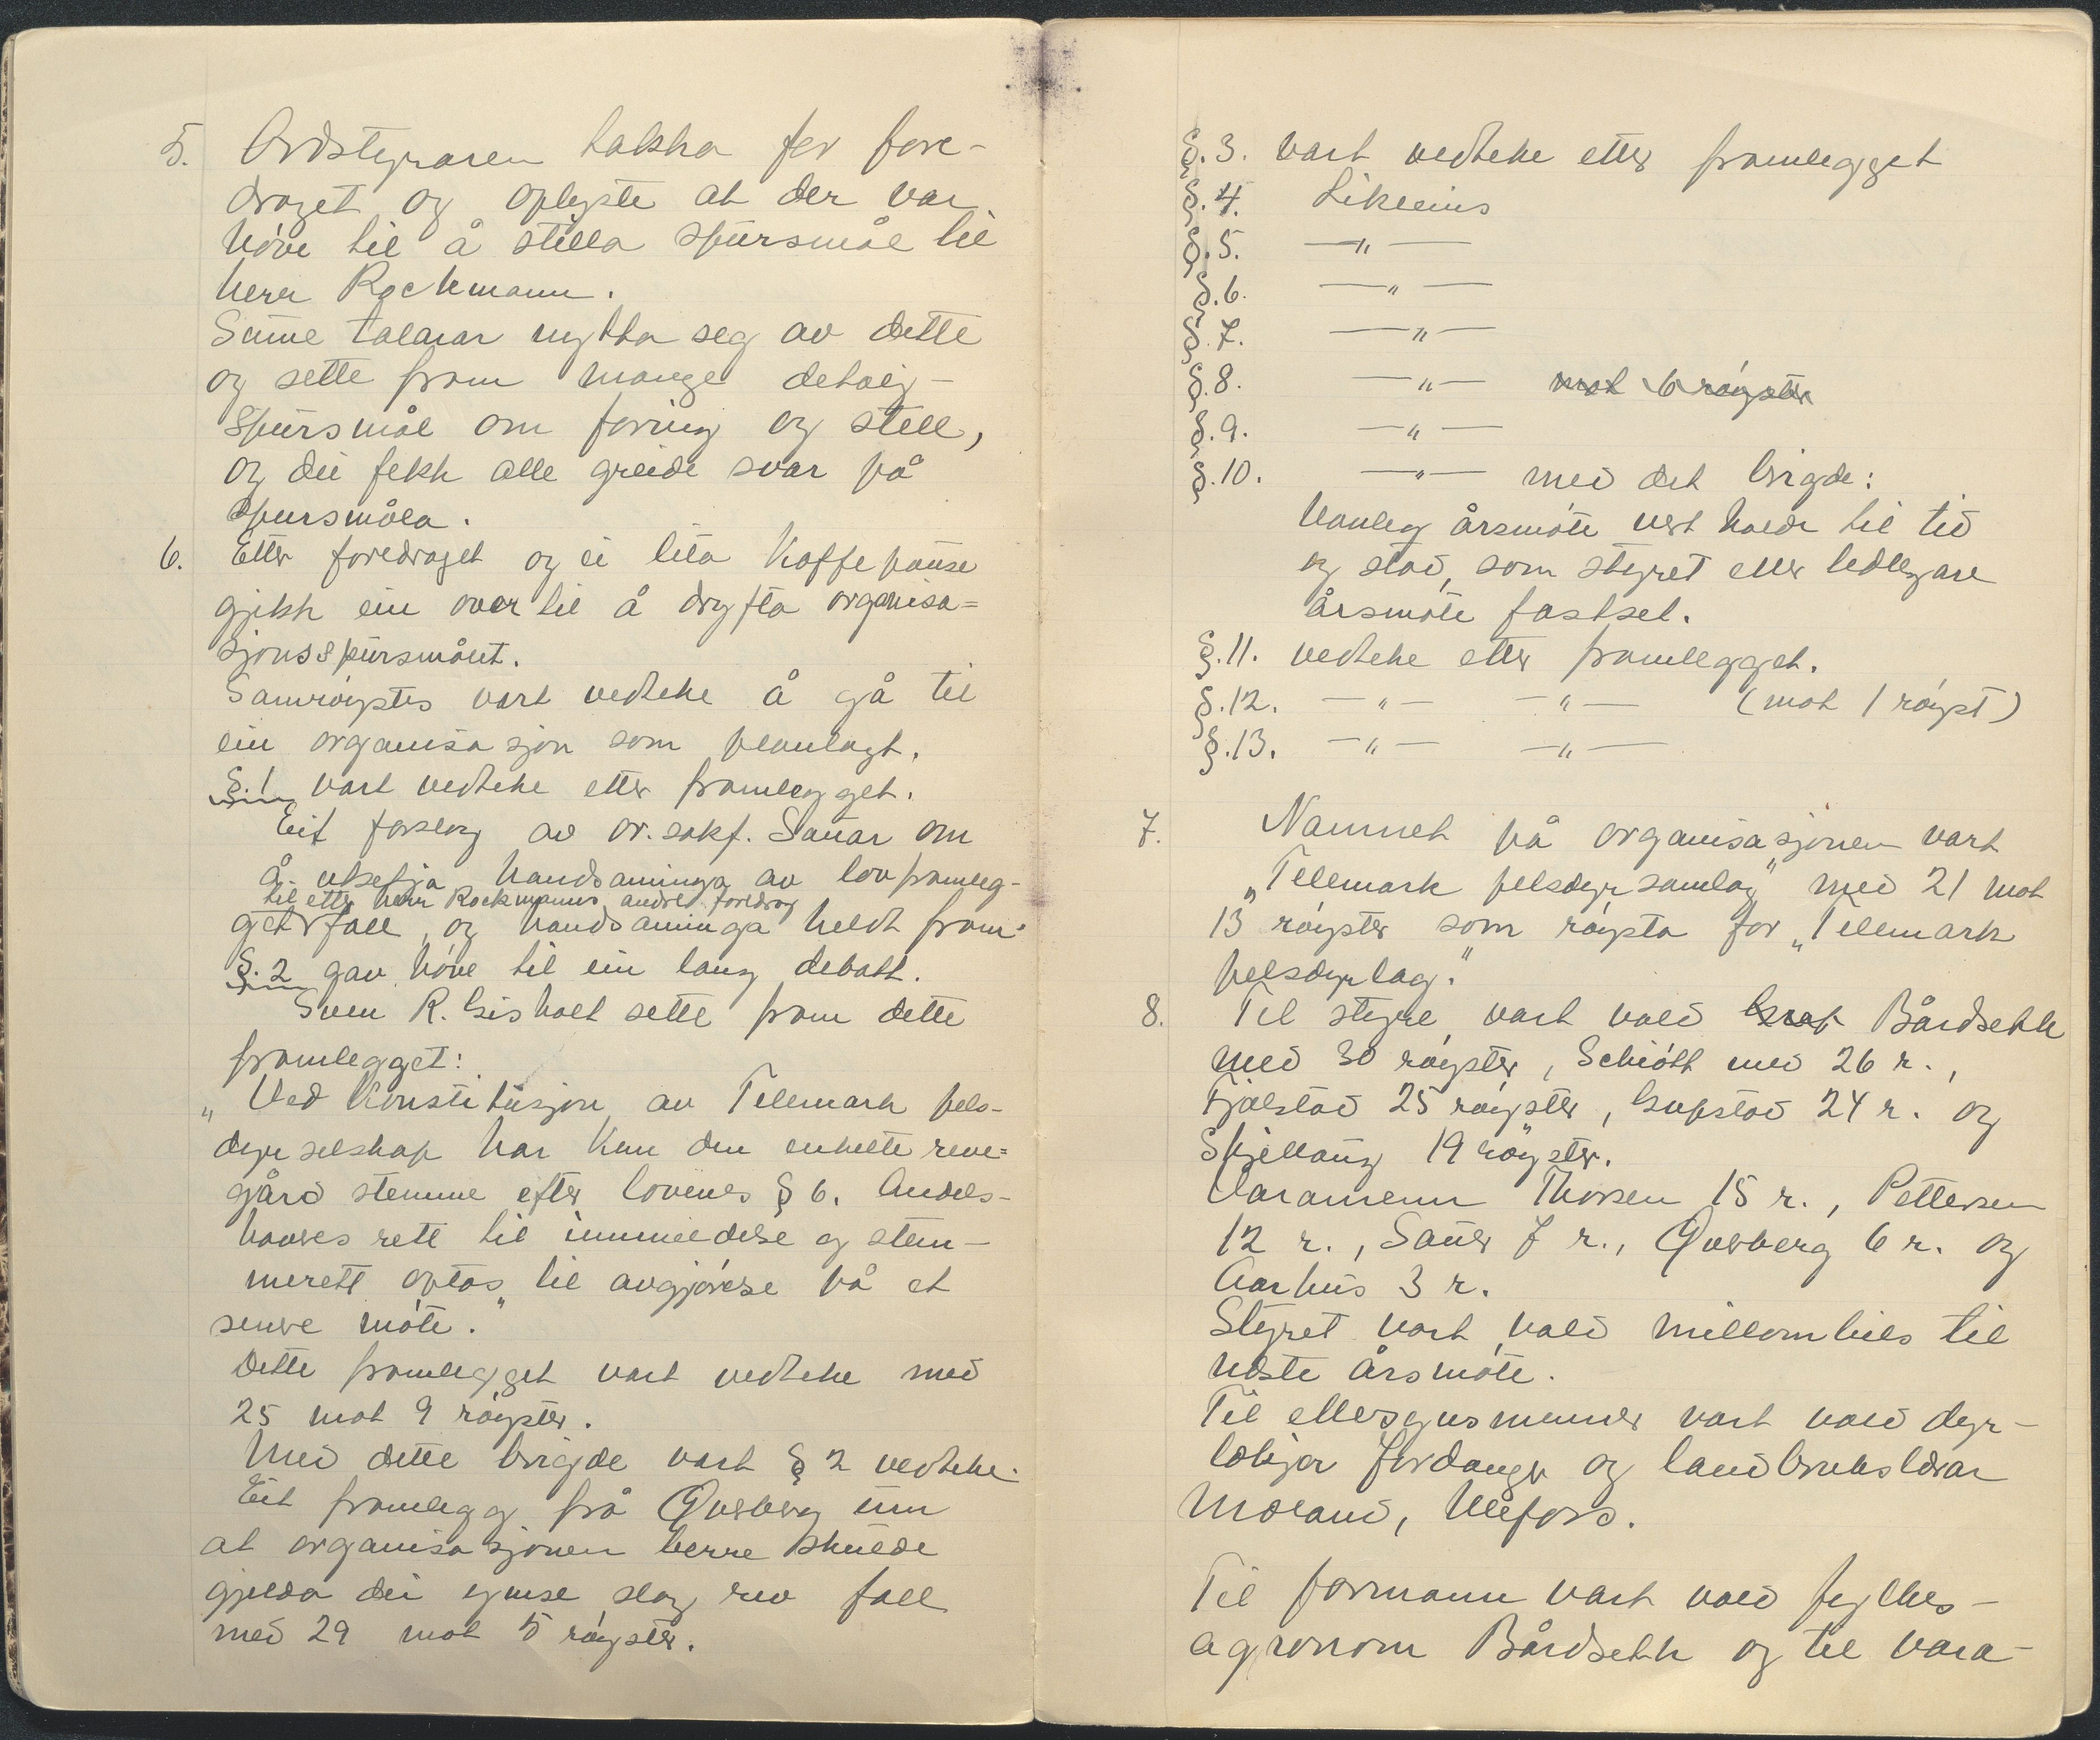 5. Ordstyraren takka for fore-
draget og oplyste at der var
høve til å stilla spursmål til
herr Rockmann.
Sume talarar nytta seg av dette
og sette fram mange detalj-
spursmål om foring og stell,
og dei fekk alle greide svar på
spursmåla.
6. Etter foredraget og ei lita kaffepause
gjekk ein over til å dryfta organisa=
sjonsspursmålet.
Samrøystes vart vedteke å gå til
ein organisasjon som planlagt.
§.1 vart vedteke etter framlegget.
Eit forslag av or.sakf. Sauar om
å utsetja handsaminga av lovframleg-
til etter herr Rockmanns andre foredrag
get fall, og handsaminga heldt fram.
§.2 gav høve til ein lang debatt.
Sven R. Gisholt sette fram dette
framlegget:
„Ved konstitusjon av Telemark pels-
dyrselskap har kun den enkelte reve=
gård stemme efter lovenes § 6. Andels-
haveres rett til innmeldelse og stem-
merett optas til avgjørelse på et
senere møte."
Dette framlegget vart vedteke med
25 mot 9 røyster.
Med dette brigde vart § 2 vedteke.
Eit framlegg frå Qvesberg um
at organisasjonen berre skulde
gjelda dei ymse slag rev fall
med 29 mot 5 røyster.
§.3. vart vedteke etter framlegget
§.4. Likeeins
§.5. —"—
§.6. —"—
§.7. —"—
§.8. —"— mot 6 røyster
§.9. —"—
§.10. —"— med det brigde:
Vanleg årsmøte vert halde til tid
og stad, som styret eller tidlegare
årsmøte fastset.
§.11. vedteke etter framlegget.
§.12. —"— —"— (mot 1 røyst)
§.13. —"— —"—
7. Namnet på organisasjonen vart
„Telemark pelsdyrsamlag" med 21 mot
13 røyster som røysta for „Telemark
pelsdyrlag."
8. Til styre vart vald Bårdsekk
med 30 røyster, Schiøtt med 26 r.,
Fjælstad 25 røyster, Gupstad 24 r. og
Skjellaug 19 røyster.
Varamenn Thorsen 15 r., Pettersen
12 r., Sauer 7 r., Qvesberg 6 r. og
Aarhus 3 r.
Styret vart vald millombils til
næste årsmøte.
Til tillersgnsmenner vart vald dyr-
lækjar Jordanger og landbrukslærar
Moland, Ulefoss.
Til formann vart vald fylkes-
agronom Bårdsekk og til vara-